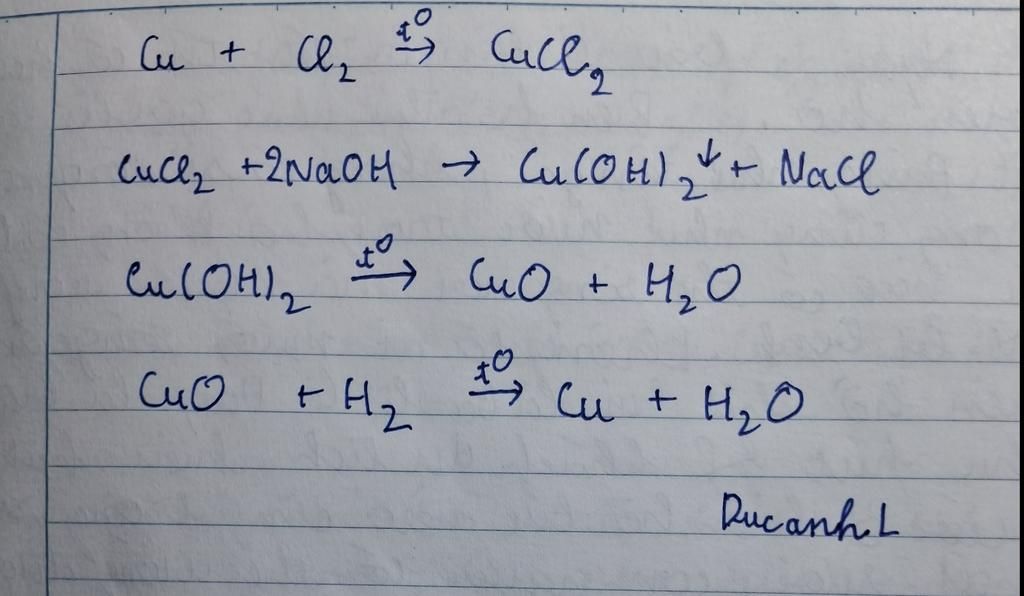 Cu + Cl₂ t⁰→ CuCl₂
CuCl₂ +2NaOH → Cu(OH)₂↓ + NaCl
Cu(OH)₂ t⁰→ CuO + H₂O
CuO + H₂ t⁰→ Cu + H₂O
Ducanh.L